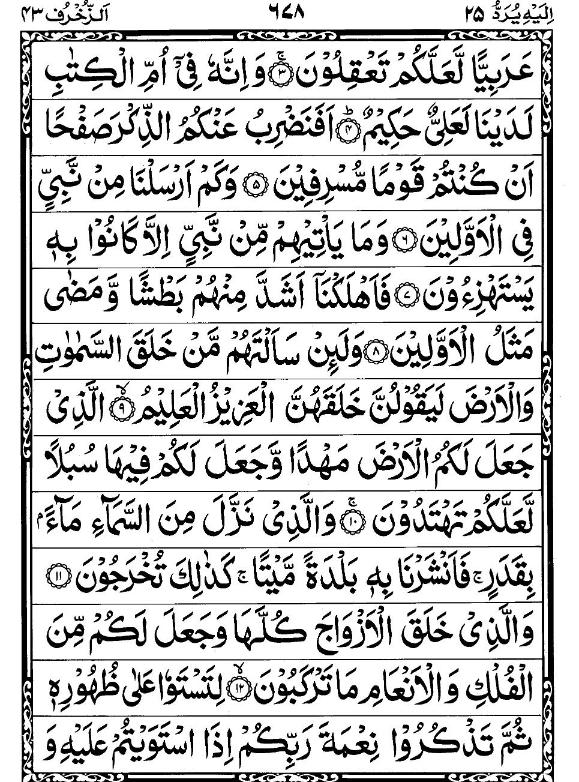 اِلَيْهِ يُرَدُّ ٢٥ ٦٧٨ اَلزُّخْرُف ٤٣
عَرَبِيًّا لَّعَلَّكُمْ تَعْقِلُوْنَ ۚ‏﴿۳﴾ وَاِنَّهٗ فِىْۤ اُمِّ الْكِتٰبِ
لَدَيْنَا لَعَلِىٌّ حَكِيْمٌؕ‏﴿۴﴾ اَفَنَضْرِبُ عَنْكُمُ الذِّكْرَ صَفْحًا
اَنْ كُنْتُمْ قَوْمًا مُّسْرِفِيْنَ‏﴿۵﴾ وَكَمْ اَرْسَلْنَا مِنْ نَّبِىٍّ
فِى الْاَوَّلِيْنَ‏﴿۶﴾ وَمَا يَاْتِيْهِمْ مِّنْ نَّبِىٍّ اِلَّا كَانُوْا بِهٖ
يَسْتَهْزِءُوْنَ‏﴿۷﴾ فَاَهْلَكْنَاۤ اَشَدَّ مِنْهُمْ بَطْشًا وَّمَضٰى
مَثَلُ الْاَوَّلِيْنَ‏﴿۸﴾ وَلَئِنْ سَاَلْتَهُمْ مَّنْ خَلَقَ السَّمٰوٰتِ
وَالْاَرْضَ لَيَقُوْلُنَّ خَلَقَهُنَّ الْعَزِيْزُ الْعَلِيْمُۙ‏﴿۹﴾ الَّذِىْ
جَعَلَ لَكُمُ الْاَرْضَ مَهْدًا وَّجَعَلَ لَكُمْ فِيْهَا سُبُلًا
لَّعَلَّكُمْ تَهْتَدُوْنَۚ‏﴿۱۰﴾ وَالَّذِىْ نَزَّلَ مِنَ السَّمَآءِ مَآءًۢ
بِقَدَرٍۚ فَاَنْشَرْنَا بِهٖ بَلْدَةً مَّيْتًاۚ كَذٰلِكَ تُخْرَجُوْنَ‏﴿۱۱﴾
وَالَّذِىْ خَلَقَ الْاَزْوَاجَ كُلَّهَا وَجَعَلَ لَكُمْ مِّنَ
الْفُلْكِ وَالْاَنْعَامِ مَا تَرْكَبُوْنَۙ‏﴿۱۲﴾ لِتَسْتَوٗا عَلٰى ظُهُوْرِهٖ
ثُمَّ تَذْكُرُوْا نِعْمَةَ رَبِّكُمْ اِذَا اسْتَوَيْتُمْ عَلَيْهِ وَ